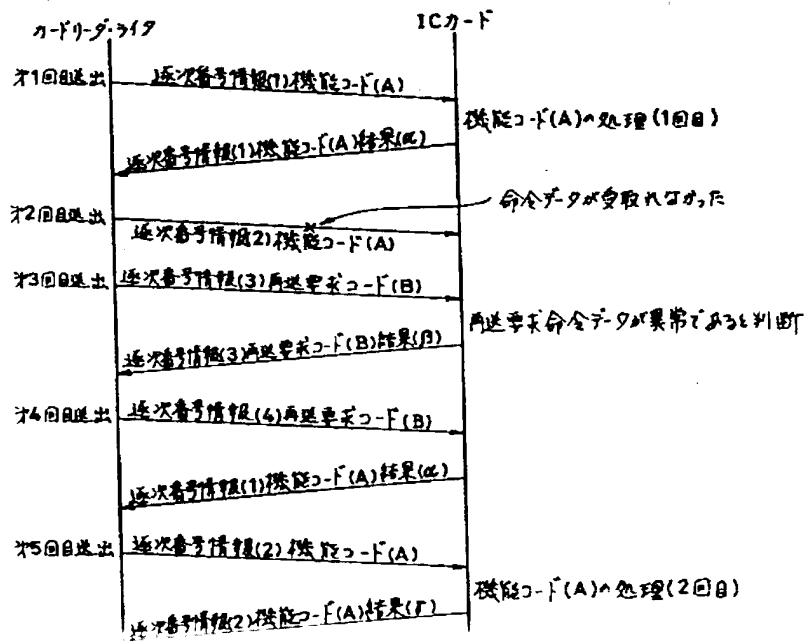 カードリーダ・ライタ
ICカード
才1回目送出
逐次番号情報(1)機能コード(A)
機能コード(A)の処理(1回目)
逐次番号情報(1)機能コード(A)結果(α)
命令データが受取れなかった
才2回目送出
逐次番号情報(2)機能コード(A)
才3回目送出
逐次番号情報(3)再送要求コード(B)
再送要求命令データが異常であると判断
逐次番号情報(3)再送要求コード(B)結果(β)
才4回目送出
逐次番号情報(4)再送要求コード(B)
逐次番号情報(1)機能コード(A)結果(α)
才5回目送出
逐次番号情報(2)機能コード(A)
機能コード(A)の処理(2回目)
逐次番号情報(2)機能コード(A)結果(γ)